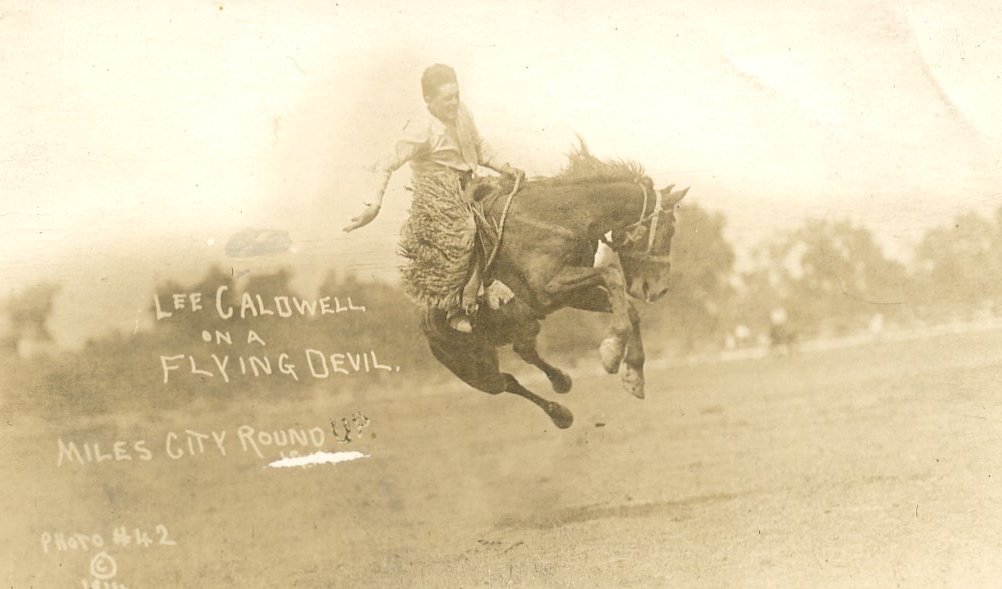 LEE CALDWELL
ON A
FLYING DEVIL.
MILES CITY ROUND UP.
PHOTO #42
©